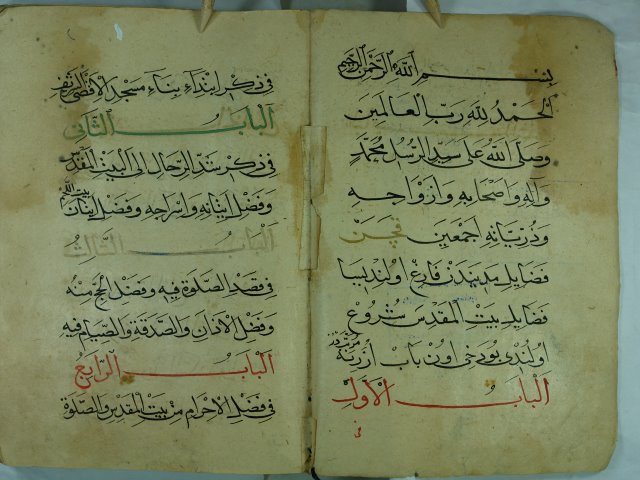 بسم الله الرحمن الرحيم
الحمد لله رب العالمين
وصلى الله على سيد الرسل محمد
وآله واصحابه وازواجه
وذرياته اجمعين قچن
فضايل مدينه‌دن فارغ اولنديسا
فضايل بيت المقدس شروع
اولندى بو دخى اون باب اوزرينه مرتبدر
الباب الاول
فى
فى ذكر ابتداء بناء مسجد الاقصى الشريف
الباب الثانى
فى ذكر شد الرحال الى البيت المقدس
وفضل اتيانه واسراجه وفضل اتيان بيت اللحم
الباب الثالث
فى قصد الصلوة فيه وفضل الحج منه
وفضل الاذان والصدقة والصيام فيه
الباب الرابع
فى فضل الاحرام من بيت المقدس والصلوة